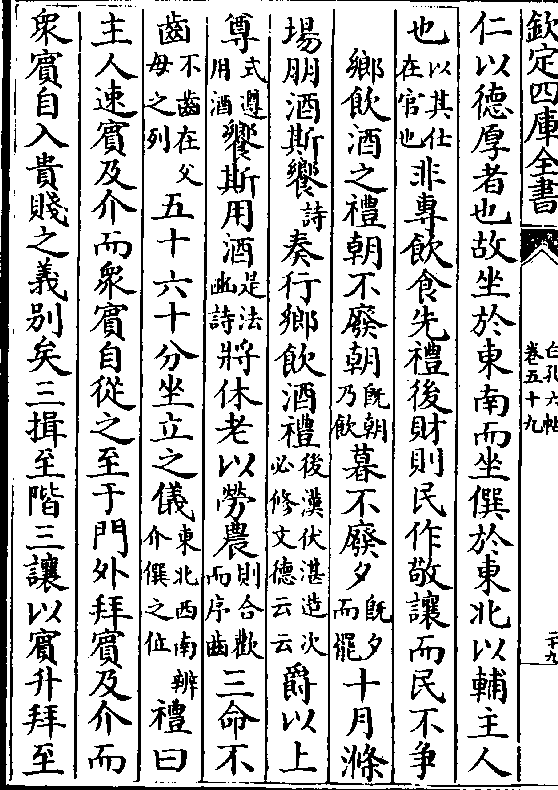 欽定四庫全書
白孔六帖
卷五十九
仁以德厚者也故坐於東南而坐僎於東北以輔主人
也以其仕在官也非專飲食先禮後財則民作敬讓而民不爭
鄉飲酒之禮朝不廢朝既朝乃飲暮不廢夕既夕而罷十月滌
場朋酒斯饗詩奏行鄉飲酒禮後漢伏湛造次必修文德云云爵以上
尊式遵用酒饗斯用酒是法豳詩將休老以勞農則合歡而序齒三命不
齒不齒在父母之列五十六十分坐立之儀東北西南辨介僎之位禮曰
主人速賓及介而衆賓自從之至于門外拜賓及介而
衆賓自入貴賤之義别矣三揖至階三讓以賓升拜至